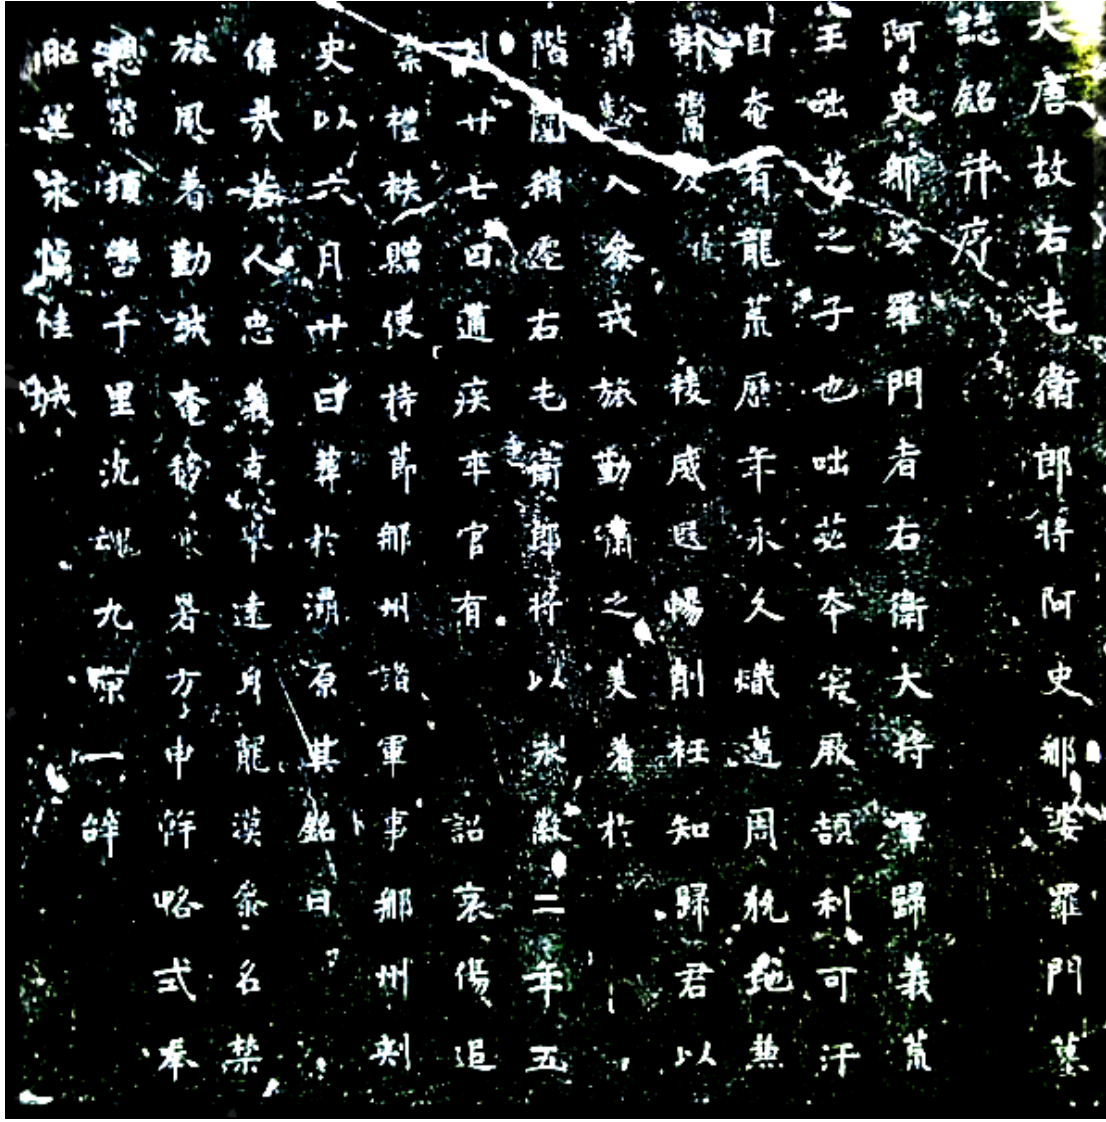 大唐故右屯衛郎將阿史那婆羅門墓
誌銘并序
阿史那婆羅門者右衛大將軍歸義荒
王咄苾之子也咄苾本突厥頡利可汗
自奄有龍荒歷年永久熾邁周猃地兼
軒鬻及 稜威遐暢削衽知歸君以
入參戎旅勤肅之美著於
階闥稍遷右屯衛郎將以永徽二年五
廿七日遘疾卒官有 詔哀傷追
崇禮秩贈使持節那州諸軍事那州刺
史以六月廿日葬於灞原其銘曰
偉哉若人忠義克舉達身龍漠參名禁
旅風着勤誠奄移寒暑方申幹略式奉
恩榮頓轡千里沉魂九京一
昭迷 城